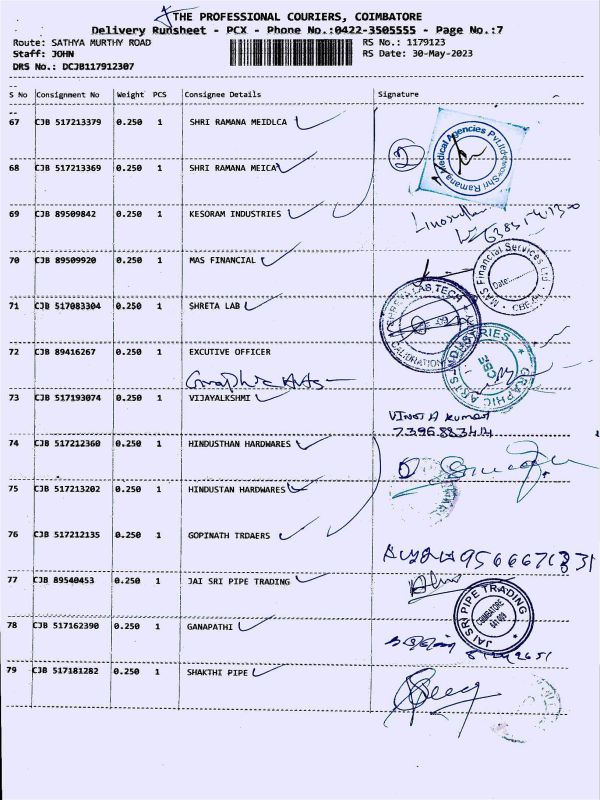 THE PROFESSIONAL COURIERS, COIMBATORE
Delivery Runsheet - PCX - Phone No.:0422-3505555 - Page No.:7
Route: SATHYA MURTHY ROAD
RS No.: 1179123
Staff: JOHN
RS Date: 30-May-2023
DRS No.: DCJB117912307
S No Consignment No Weight PCS Consignee Details Signature
67 CJB 517213379 0.250 1 SHRI RAMANA MEIDLCA
68 CJB 517213369 0.250 1 SHRI RAMANA MEICA
2
Shri Ramana Medical Agencies Pvt.Ltd
69 CJB 89509842 0.250 1 KESORAM INDUSTRIES
70 CJB 89509920 0.250 1 MAS FINANCIAL
MAS Financial Services Ltd
Date:
CBE
71 CJB 517083304 0.250 1 SHRETA LAB
CALIBRATION
72 CJB 89416267 0.250 1 EXCUTIVE OFFICER
Graphic Arts
GRAPHIC ARTS INDUSTRIES
CBE
73 CJB 517193074 0.250 1 VIJAYALKSHMI
74 CJB 517212360 0.250 1 HINDUSTHAN HARDWARES
75 CJB 517213202 0.250 1 HINDUSTAN HARDWARES
76 CJB 517212135 0.250 1 GOPINATH TRDAERS
9566671831
77 CJB 89540453 0.250 1 JAI SRI PIPE TRADING
JAI SRI PIPE TRADING
COIMBATORE
78 CJB 517162390 0.250 1 GANAPATHI
79 CJB 517181282 0.250 1 SHAKTHI PIPE